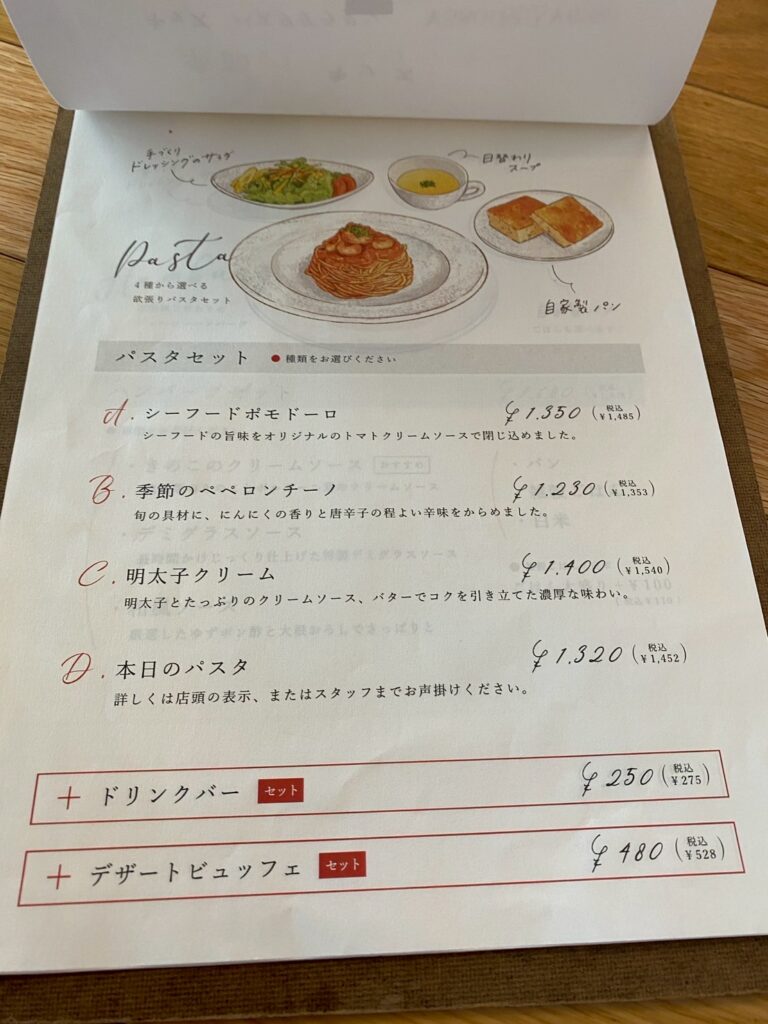 手づくり
ドレッシングのサラダ
日替わり
スープ
Pasta
4種から選べる
欲張りパスタセット
自家製パン
パスタセット ●種類をお選びください
A. シーフードポモドーロ ¥1.350 (税込 ¥1,485)
シーフードの旨味をオリジナルのトマトクリームソースで閉じ込めました。
B. 季節のペペロンチーノ ¥1.230 (税込 ¥1,353)
旬の具材に、にんにくの香りと唐辛子の程よい辛味をからめました。
C. 明太子クリーム ¥1.400 (税込 ¥1,540)
明太子とたっぷりのクリームソース、バターでコクを引き立てた濃厚な味わい。
D. 本日のパスタ ¥1.320 (税込 ¥1,452)
詳しくは店頭の表示、またはスタッフまでお声掛けください。
+ ドリンクバー セット ¥250 (税込 ¥275)
+ デザートビュッフェ セット ¥480 (税込 ¥528)